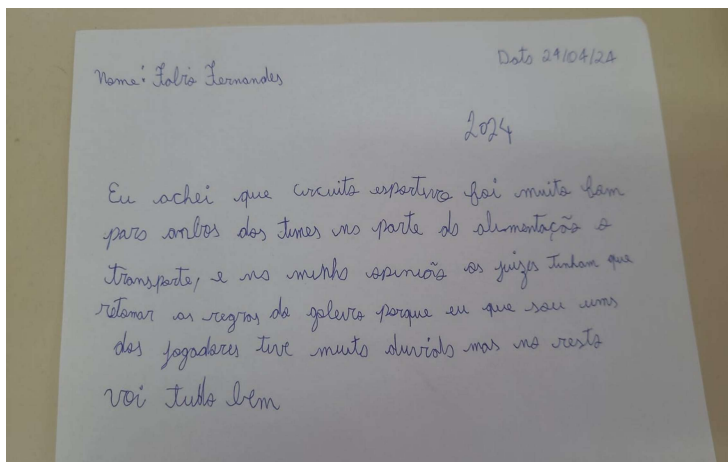 Nome: Fabio Fernandes
Data 29/04/24
2024
Eu achei que circuito esportivo foi muito bom
para ambos dos times na parte da alimentação o
transporte, e na minha opinião os juizes tinham que
retomar as regras do goleiro porque eu que sou ums
dos jogadores tive muita duvida mas no resto
voi tudo bem